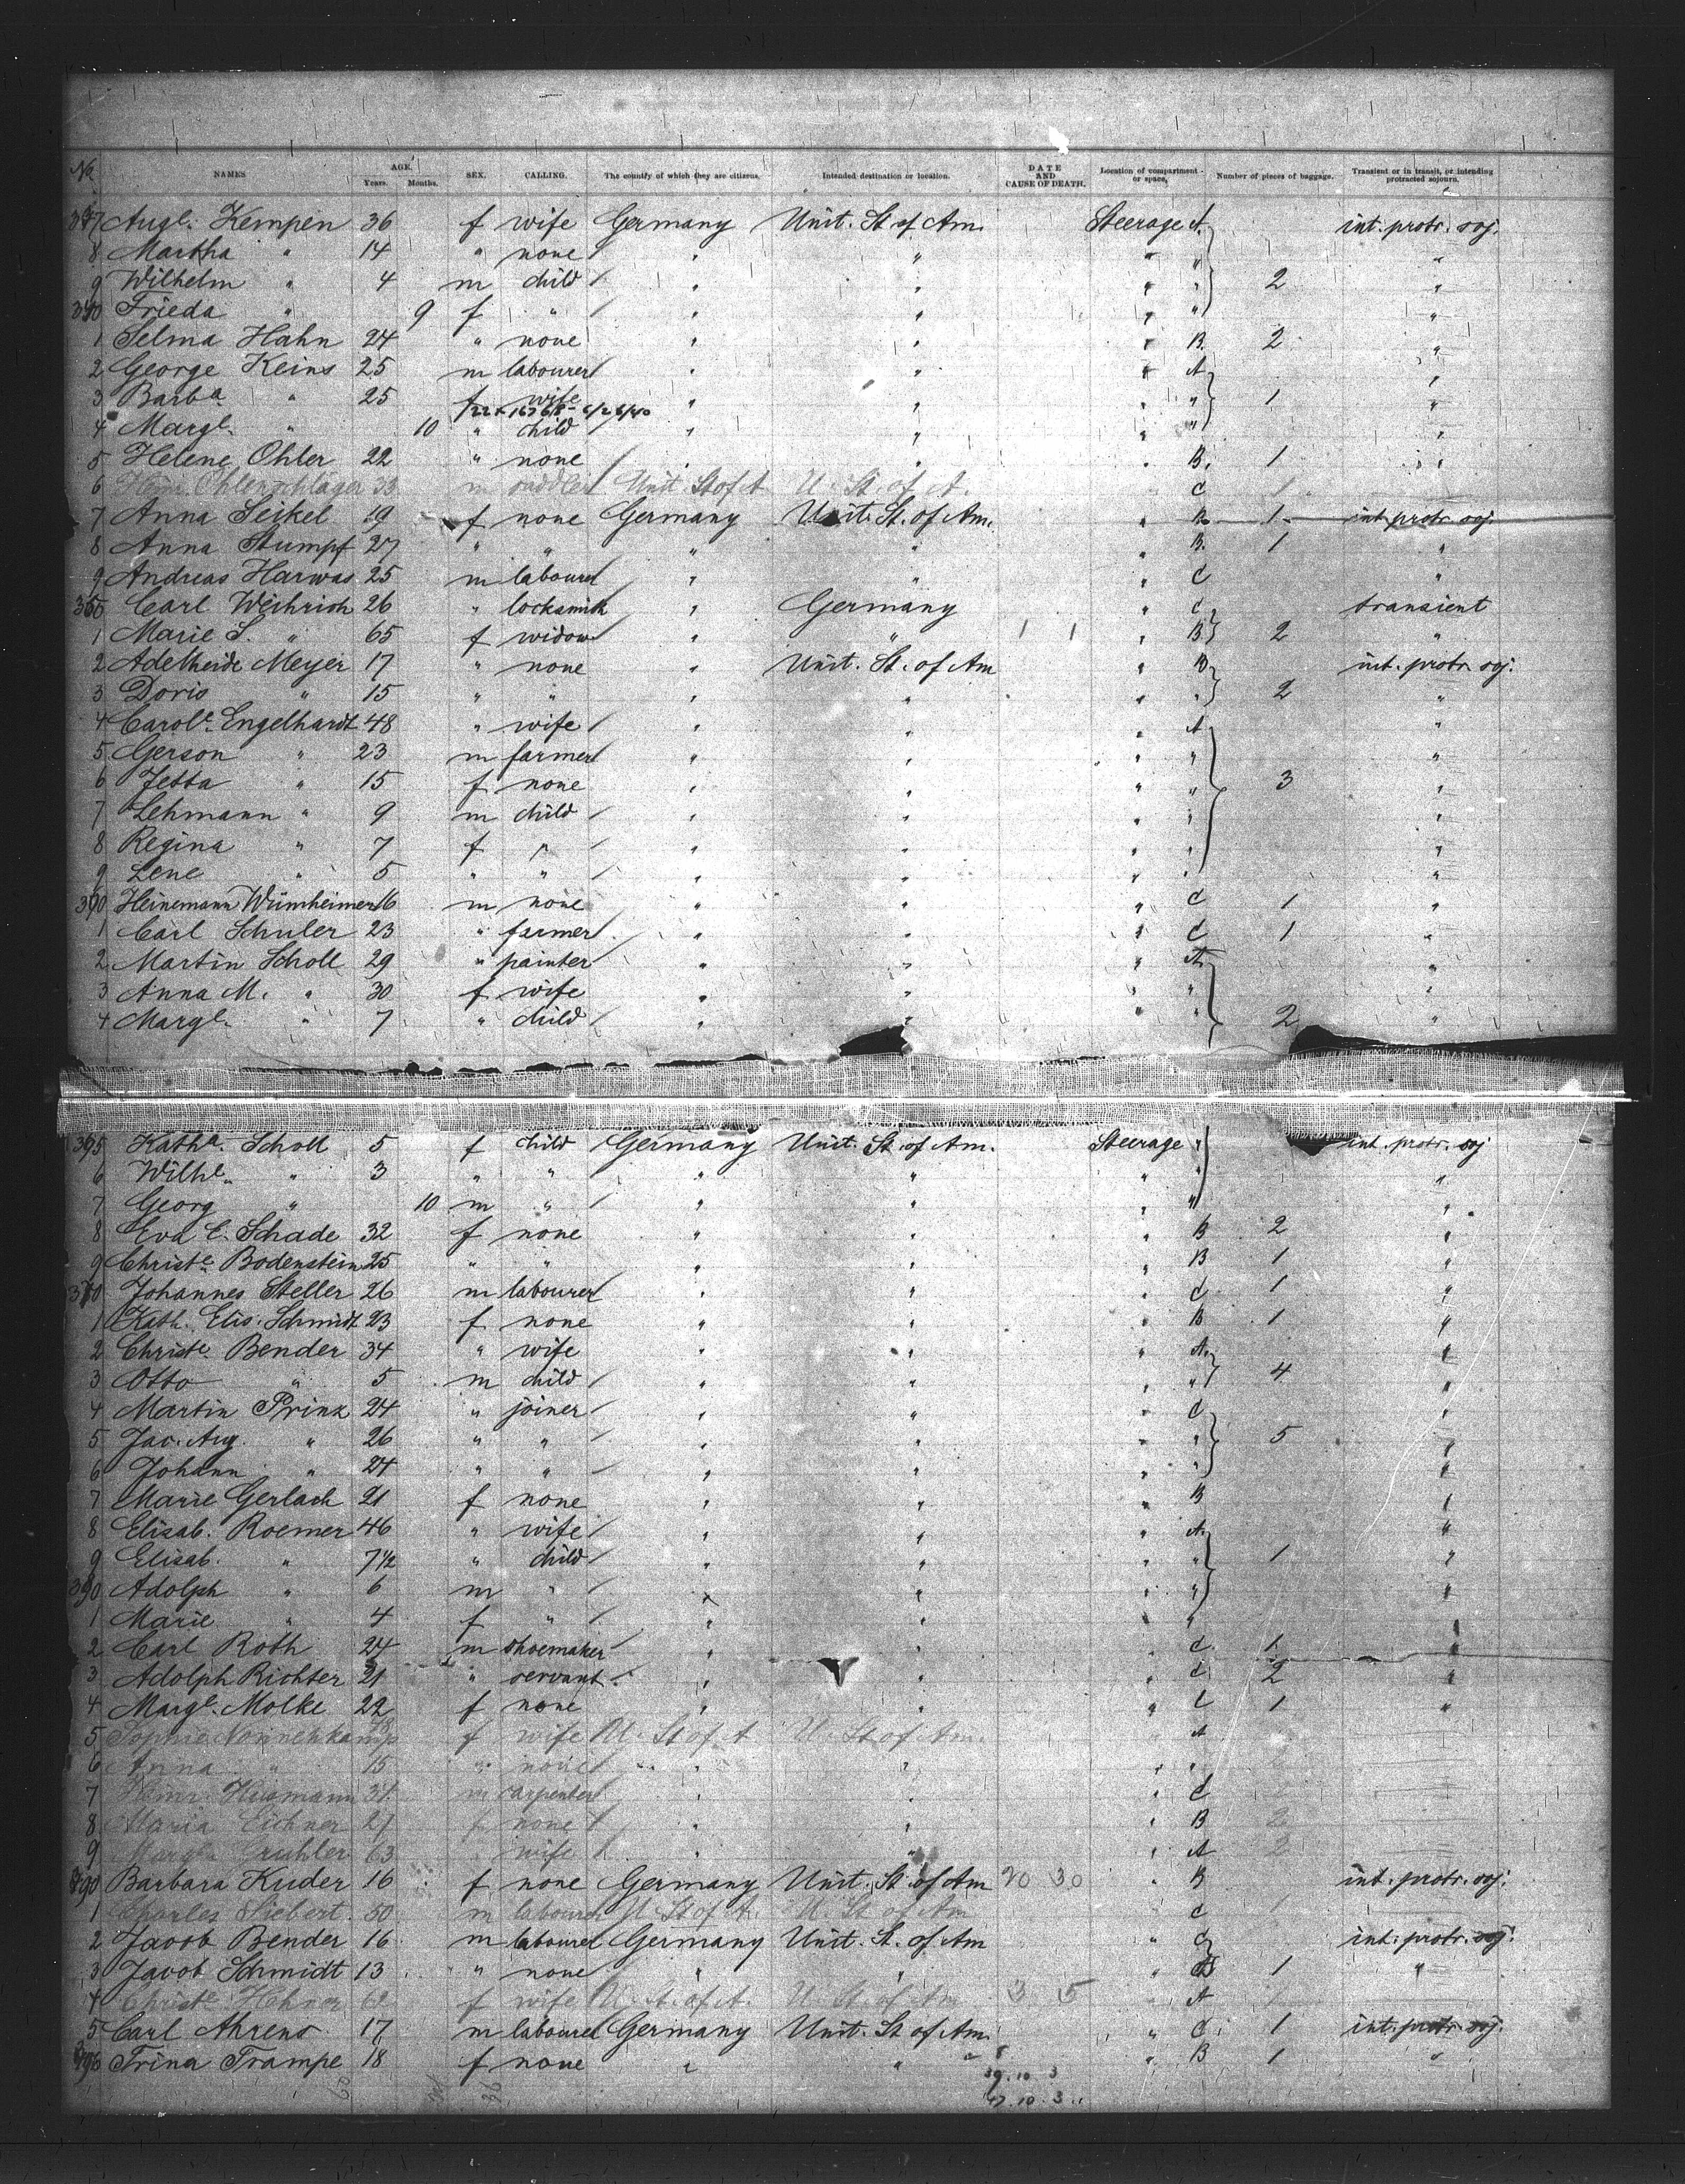 No. NAMES AGE. Years. Months. SEX. CALLING. The country of which they are citizens. Intended destination or location. DATE AND CAUSE OF DEATH. Location of compartment or space, Number of pieces of baggage. Transient or in transit, or intending protracted sojourn.
337 Augt. Kempen 36 f wife Germany Unit. St of Am. Steerage A. int. protr. soj.
8 Martha " 14 " none " " " " "
9 Wilhelm " 4 m child " " " " 2 "
340 Frieda " 9 f " " " " " "
1 Selma Hahn 24 " none " " " B. 2 "
2 George Keins 25 m labourer " " " A "
3 Barba " 25 f wife " " " " 1 "
4 Margt. " 10 " child " " " " "
5 Helene Ohler 22 " none " " " B. 1 "
6 Ohlenschläger 33 m saddler Unit. St of A U. St of A. " C 1
7 Anna Seikel 19 f none Germany Unit. St. of Am. " B. 1 int. protr. soj.
8 Anna Stumpf 27 " " " " " B. 1 "
9 Andreas Harwas 25 m labourer " " " C "
350 Carl Weihrich 26 " locksmith " Germany " C transient
1 Marie S. " 65 f widow " " 1 1 " B 2 "
2 Adelheide Meyer 17 " none " Unit. St. of Am " B int. protr. soj.
3 Doris " 15 " " " " " " 2 "
4 Carole. Engelhardt 48 " wife " " " A "
5 Gerson " 23 m farmer " " " " "
6 Jetta " 15 f none " " " " 3 "
7 Lehmann " 9 m child " " " " "
8 Regina " 7 f " " " " " "
9 Lene " 5 " " " " " " "
360 Heinemann Wümheimer 16 m none " " " C 1 "
1 Carl Schuler 23 " farmer " " " C 1 "
2 Martin Scholl 29 " painter " " " A. "
3 Anna M. " 30 f wife " " " " "
4 Margt. " 7 " child " " " " 2 "
365 Katha. Scholl 5 f child Germany Unit. St. of Am. Steerage " int. protr. soj
6 Wilhe. " 3 " " " " " " "
7 Georg " 10 m " " " " " "
8 Eva E. Schade 32 f none " " " B 2 "
9 Christe. Bodenstein 25 " " " " " B 1 "
370 Johannes Steller 26 m labourer " " " C 1 "
1 Kath. Elis. Schmidt 23 f none " " " B 1 "
2 Christe. Bender 34 " wife " " " A. "
3 Otto " 5 m child " " " " 4 "
4 Martin Prinz 24 " joiner " " " C "
5 Jac. Aug. " 26 " " " " " " 5 "
6 Johann " 24 " " " " " " "
7 Marie Gerlach 21 f none " " " B "
8 Elisab. Roemer 46 " wife " " " A. "
9 Elisab. " 7 1/2 " child " " " " 1 "
380 Adolph " 6 m " " " " " "
1 Marie " 4 f " " " " " "
2 Carl Roth 24 m shoemaker " " " C. 1 "
3 Adolph Richter 21 " servant " " " C 2 "
4 Margt. Molke 22 f none " " " C 1 "
5 Sophie Nonnenkamp 48 f wife U. St of A U. St of Am. A
6 Anna " 15 " none " " " "
7 Heinr. Husmann 34 m carpenter " " " C
8 Maria Eichner 27 f none " " " B 2
9 Gruhler 63 wife " " A 2
390 Barbara Kuder 16 f none Germany Unit. St. of Am 20 30 " B int. protr. soj.
1 Charles Siebert 50 m labourer U. St of A. U. St of Am C 1
2 Jacob Bender 16 m labourer Germany Unit. St. of Am " C int. protr. soj.
3 Jacob Schmidt 13 " none " " " C 1 "
4 Christe. Hehner 62 f wife U. St. of A. U. St. of Am 3 5 A 1
5 Carl Ahrens 17 m labourer Germany Unit. St of Am. " C 1 int. protr. soj.
396 Trina Trampe 18 f none " " " B 1 "
39. 10. 3
47. 10. 3